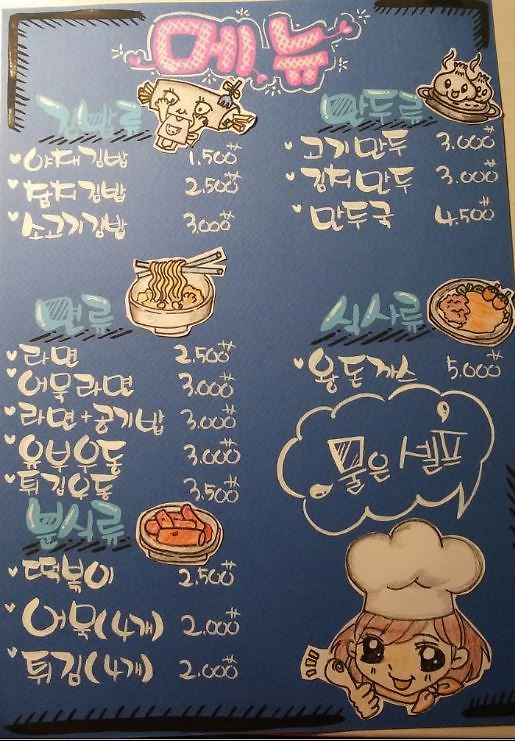 메뉴
김밥류
야채김밥 1.500원
참치김밥 2.500원
소고기김밥 3.000원
면류
라면 2.500원
어묵라면 3.000원
라면+공기밥 3.000원
유부우동 3.000원
튀김우동 3.500원
분식류
떡볶이 2.500원
어묵(4개) 2.000원
튀김(4개) 2.000원
만두류
고기만두 3.000원
김치만두 3.000원
만두국 4.500원
식사류
왕돈까스 5.000원
물은 셀프